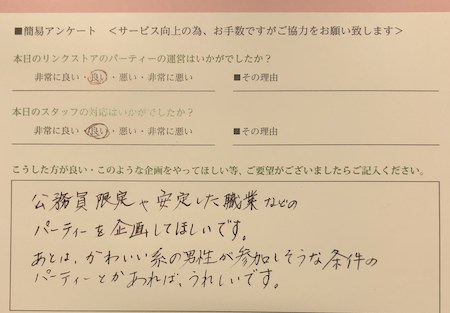 ■簡易アンケート ＜サービス向上の為、お手数ですがご協力をお願い致します＞
本日のリンクストアのパーティーの運営はいかがでしたか？
非常に良い・良い・悪い・非常に悪い ■その理由
本日のスタッフの対応はいかがでしたか？
非常に良い・良い・悪い・非常に悪い ■その理由
こうした方が良い・このような企画をやってほしい等、ご要望がございましたらご記入ください。
公務員限定や安定した職業などの
パーティーを企画してほしいです。
あとは、かわいい系の男性が参加しそうな条件の
パーティーとかあれば、うれしいです。